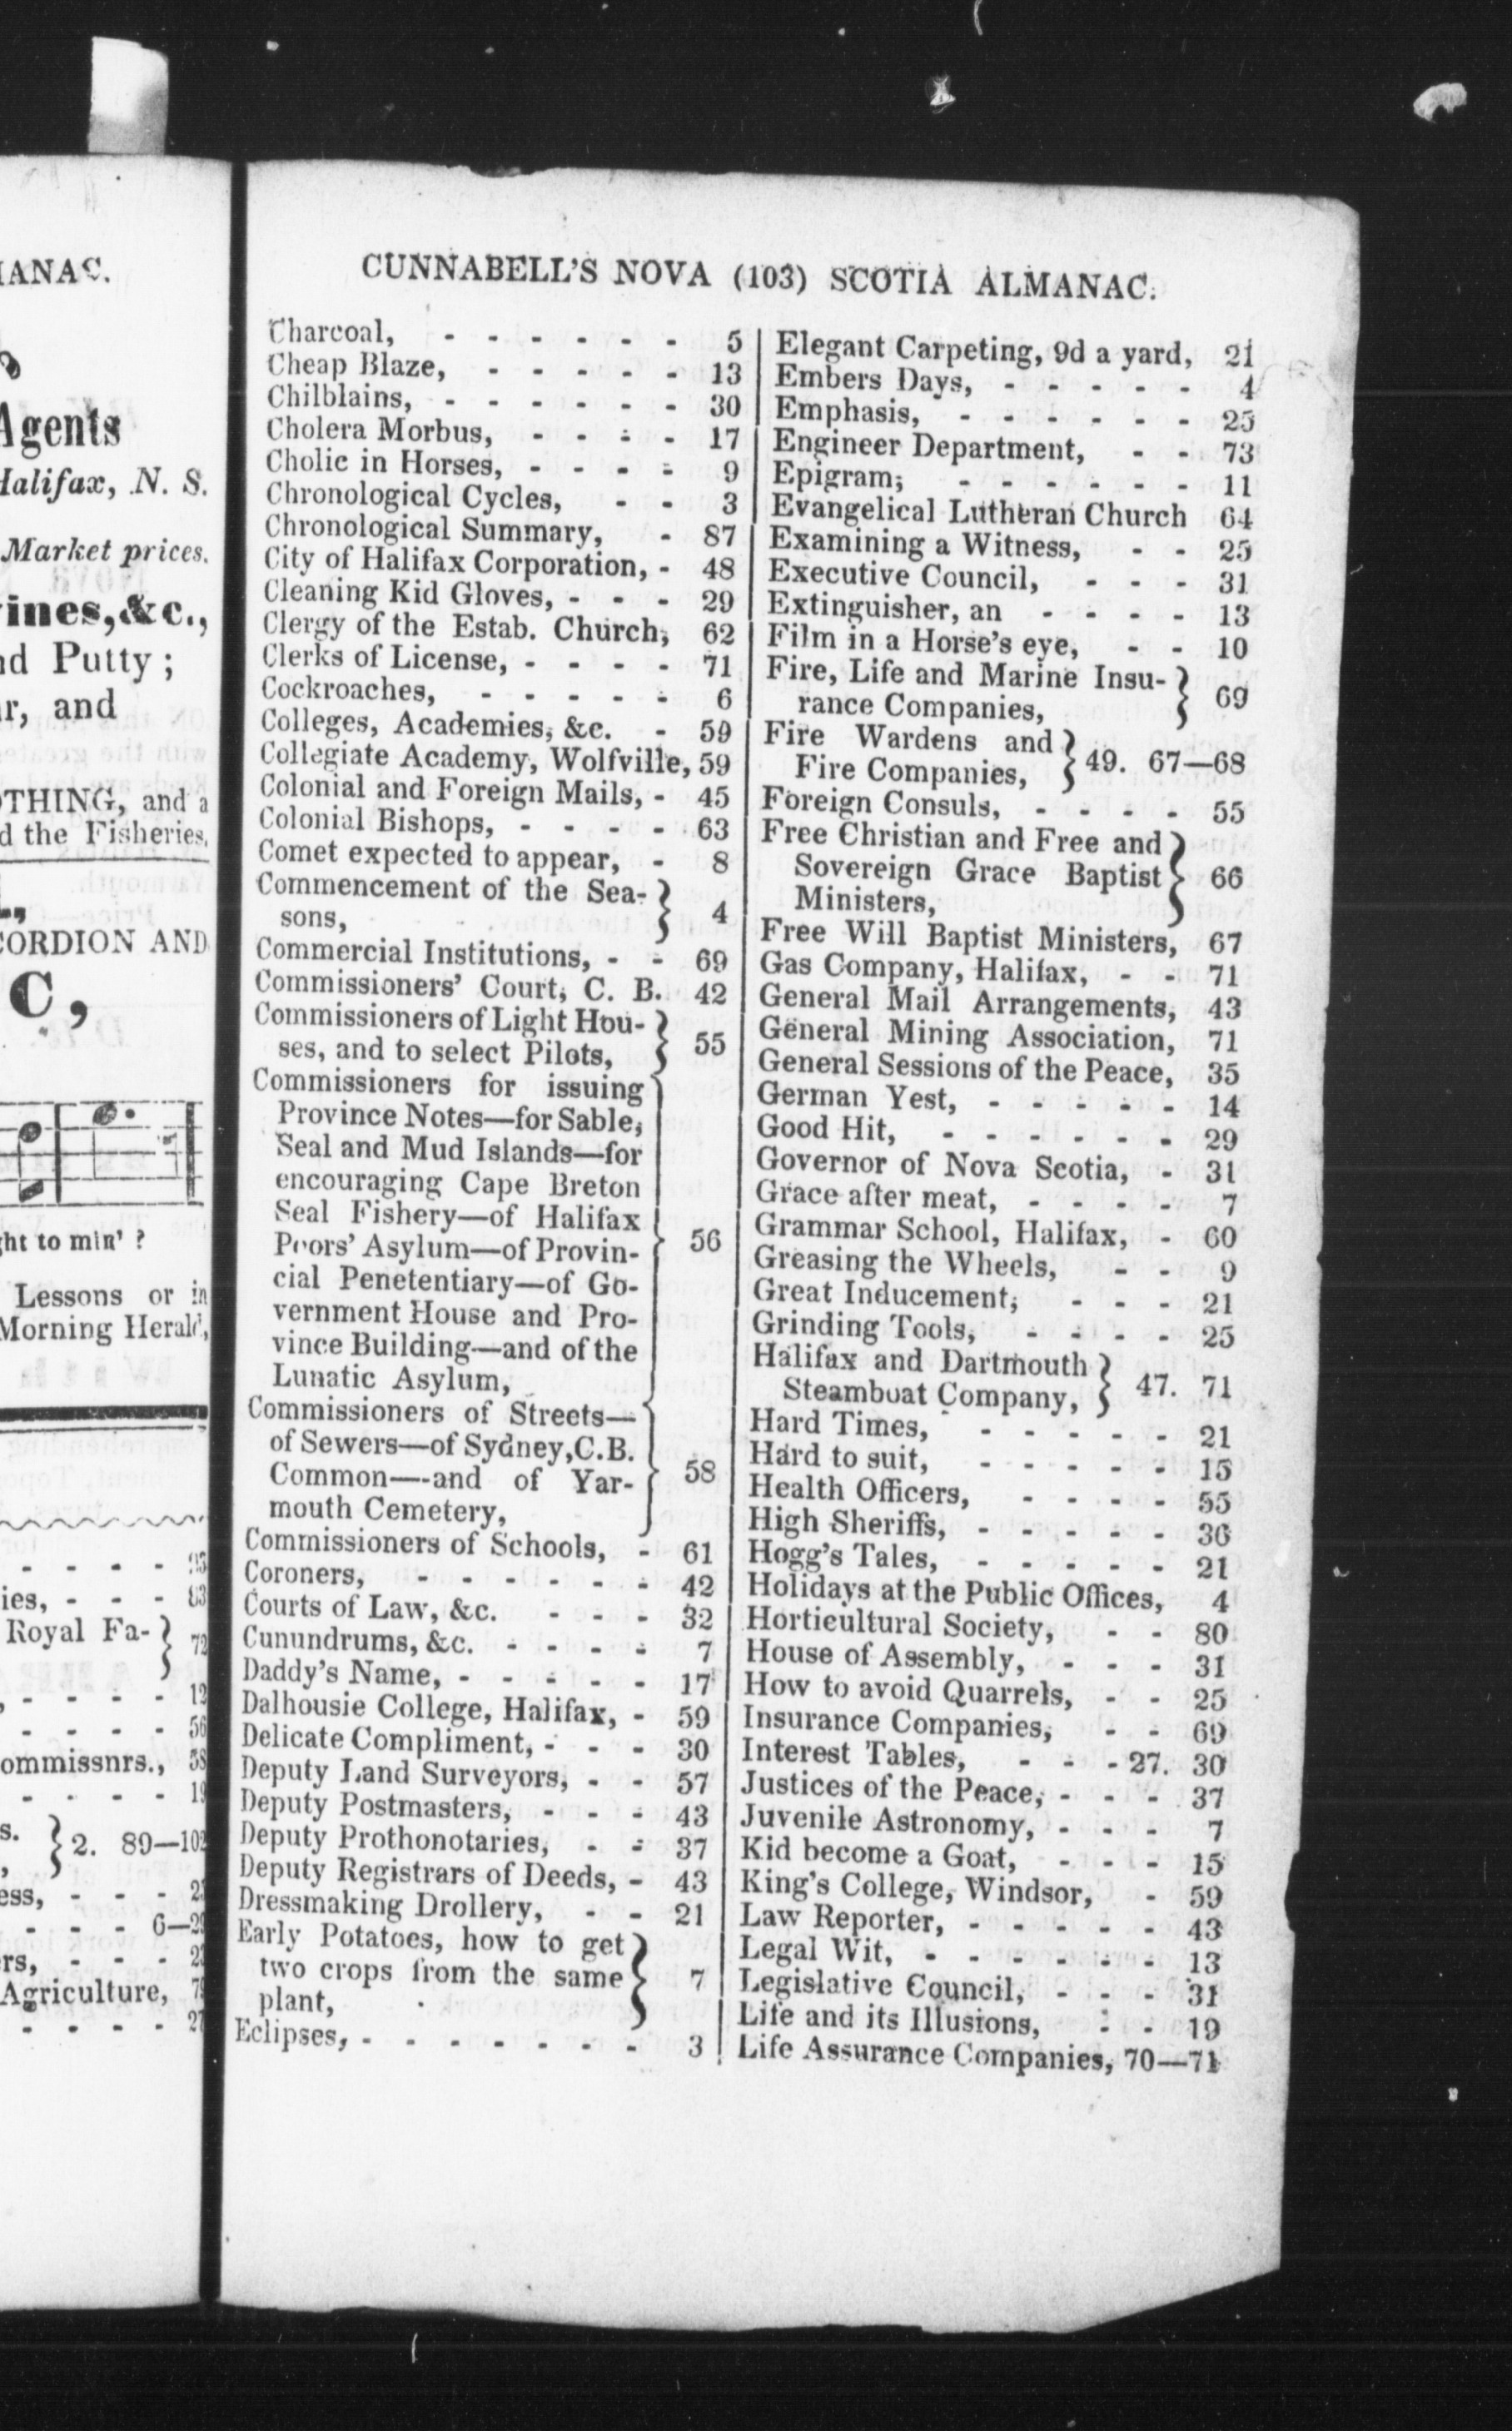 IANAC.
Agents
Halifax, N. S.
Market prices.
ines,&c.,
nd Putty ;
r, and
THING, and a
d the Fisheries.
CORDION AND
C,
ght to min' ?
Lessons or in
Morning Herald,
- - - - 95
ies, - - - 83
Royal Fa- } 72
- - - - 12
- - - - 56
ommissnrs., 58
- - - - 19
s. } 2. 89—102
ess, - - -
- - - 6—29
rs, - - -
Agriculture,
- - - - 27
CUNNABELL'S NOVA (103) SCOTIA ALMANAC.
Charcoal, - - - - - - 5
Cheap Blaze, - - - - - 13
Chilblains, - - - - - - 30
Cholera Morbus, - - - - 17
Cholic in Horses, - - - - 9
Chronological Cycles, - - 3
Chronological Summary, - 87
City of Halifax Corporation, - 48
Cleaning Kid Gloves, - - - 29
Clergy of the Estab. Church, 62
Clerks of License, - - - - 71
Cockroaches, - - - - - 6
Colleges, Academies, &c. - 59
Collegiate Academy, Wolfville, 59
Colonial and Foreign Mails, - 45
Colonial Bishops, - - - - 63
Comet expected to appear, - 8
Commencement of the Sea- }
sons, 4
Commercial Institutions, - - 69
Commissioners' Court, C. B. 42
Commissioners of Light Hou- }
ses, and to select Pilots, 55
Commissioners for issuing }
Province Notes—for Sable,
Seal and Mud Islands—for
encouraging Cape Breton
Seal Fishery—of Halifax
Poors' Asylum—of Provin- 56
cial Penetentiary—of Go-
vernment House and Pro-
vince Building—and of the
Lunatic Asylum,
Commissioners of Streets— }
of Sewers—of Sydney,C.B.
Common—-and of Yar- 58
mouth Cemetery,
Commissioners of Schools, - 61
Coroners, - - - - - - 42
Courts of Law, &c. - - - 32
Cunundrums, &c. - - - - 7
Daddy's Name, - - - - - 17
Dalhousie College, Halifax, - 59
Delicate Compliment, - - - 30
Deputy Land Surveyors, - - 57
Deputy Postmasters, - - - 43
Deputy Prothonotaries, - - 37
Deputy Registrars of Deeds, - 43
Dressmaking Drollery, - - 21
Early Potatoes, how to get }
two crops from the same 7
plant,
Eclipses, - - - - - - - 3
Elegant Carpeting, 9d a yard, 21
Embers Days, - - - - - 4
Emphasis, - - - - - - 25
Engineer Department, - - 73
Epigram, - - - - - - 11
Evangelical Lutheran Church 64
Examining a Witness, - - 25
Executive Council, - - - 31
Extinguisher, an - - - - 13
Film in a Horse's eye, - - 10
Fire, Life and Marine Insu- }
rance Companies, 69
Fire Wardens and }
Fire Companies, 49. 67—68
Foreign Consuls, - - - - 55
Free Christian and Free and }
Sovereign Grace Baptist 66
Ministers,
Free Will Baptist Ministers, 67
Gas Company, Halifax, - - 71
General Mail Arrangements, 43
General Mining Association, 71
General Sessions of the Peace, 35
German Yest, - - - - - 14
Good Hit, - - - - - - 29
Governor of Nova Scotia, - 31
Grace after meat, - - - - 7
Grammar School, Halifax, - 60
Greasing the Wheels, - - 9
Great Inducement, - - - 21
Grinding Tools, - - - - 25
Halifax and Dartmouth }
Steamboat Company, 47. 71
Hard Times, - - - - - 21
Hard to suit, - - - - - 15
Health Officers, - - - - 55
High Sheriffs, - - - - - 36
Hogg's Tales, - - - - - 21
Holidays at the Public Offices, 4
Horticultural Society, - - 80
House of Assembly, - - - 31
How to avoid Quarrels, - - 25
Insurance Companies, - - 69
Interest Tables, - - - 27. 30
Justices of the Peace, - - - 37
Juvenile Astronomy, - - - 7
Kid become a Goat, - - - 15
King's College, Windsor, - 59
Law Reporter, - - - - - 43
Legal Wit, - - - - - - 13
Legislative Council, - - - 31
Life and its Illusions, - - 19
Life Assurance Companies, 70—71